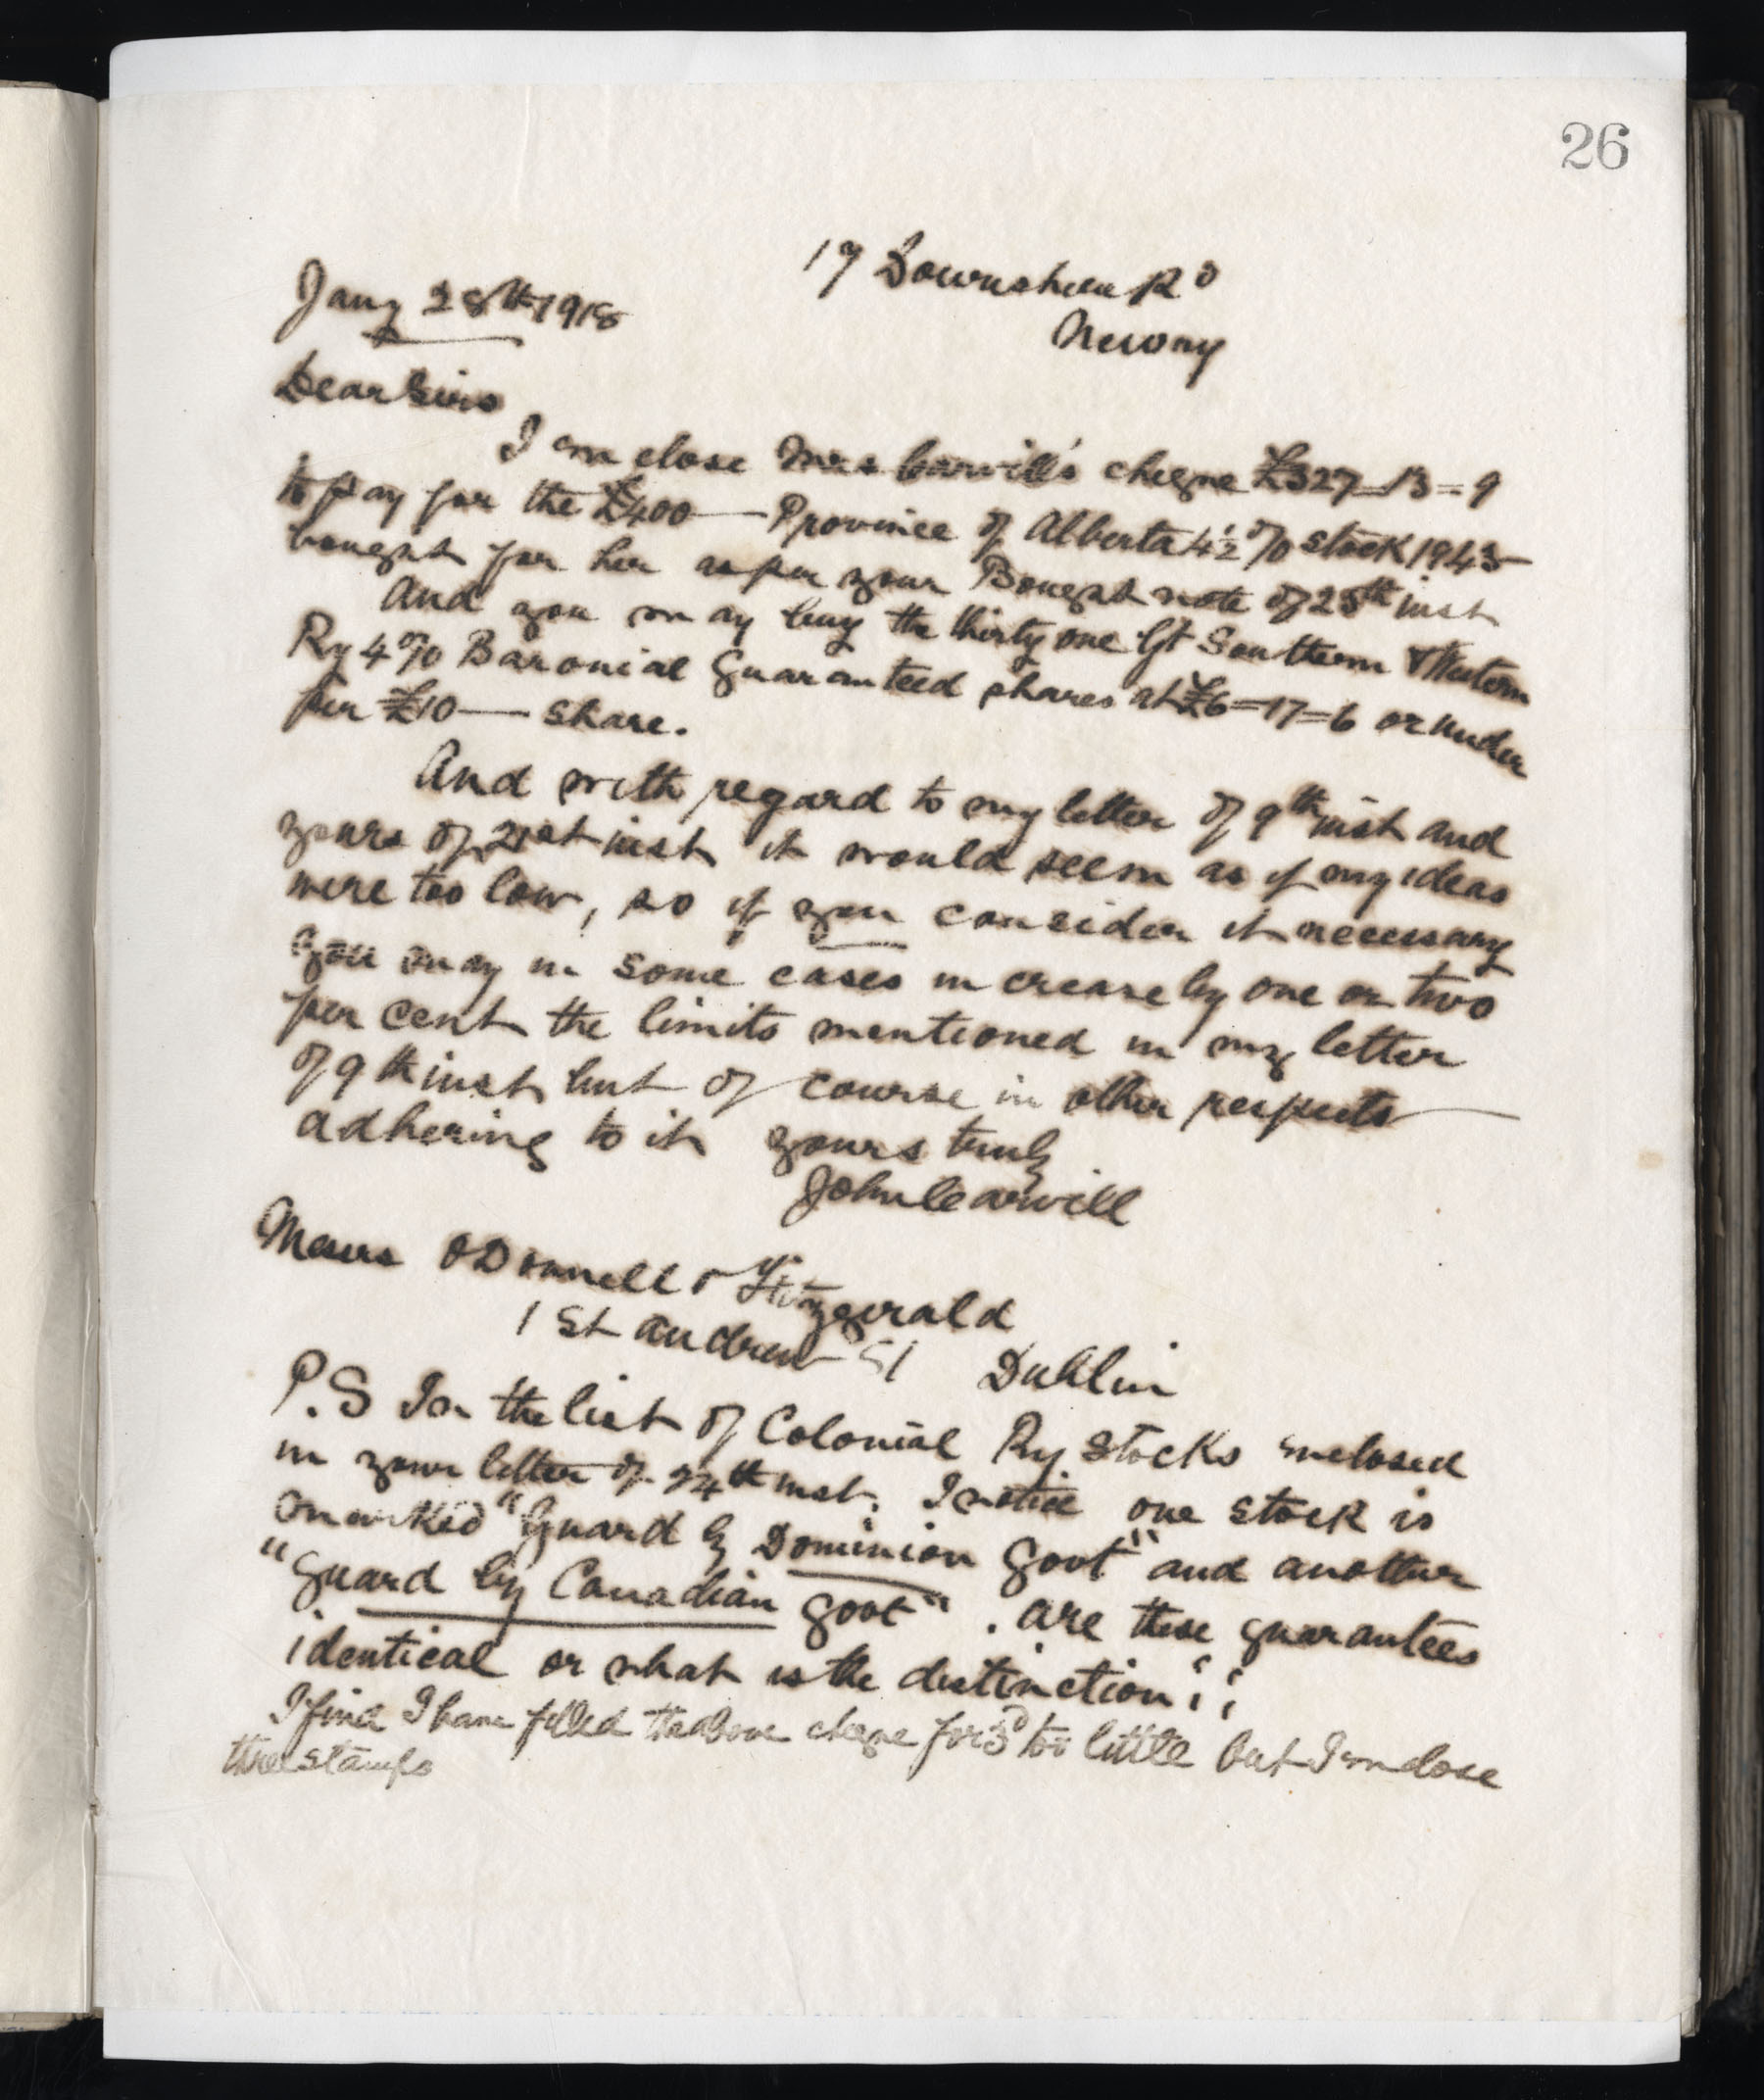 26
17 Downshire Rd
Jany 28th 1918
Newry
Dear Sirs
I enclose Mrs Carvill's cheque £327=13=9
to pay for the £400— Province of Alberta 4½% Stock 1943
bought for her as per your Bought note of 25th inst
And you may buy the thirty one Gt Southern & Western
Ry 4% Baronial Guaranteed shares at £6=17=6 or under
per £10— share.
And with regard to my letter of 9th inst and
yours of 21st inst it would seem as if my ideas
were too low, so if you consider it necessary
you may in some cases increase by one or two
per cent the limits mentioned in my letter
of 9th inst but of course in other respects
adhering to it yours truly
John Carvill
Messrs O'Donnell & Fitzgerald
1 St Andrew St Dublin
P.S In the list of Colonial Ry Stocks enclosed
in your letter of 24th inst. I notice one stock is
marked "Guard by Dominion Govt" and another
"guard by Canadian Govt". are these guarantees
identical or what is the distinction ¿¿
I find I have filled the above cheque for 3d too little but I enclose
three stamps